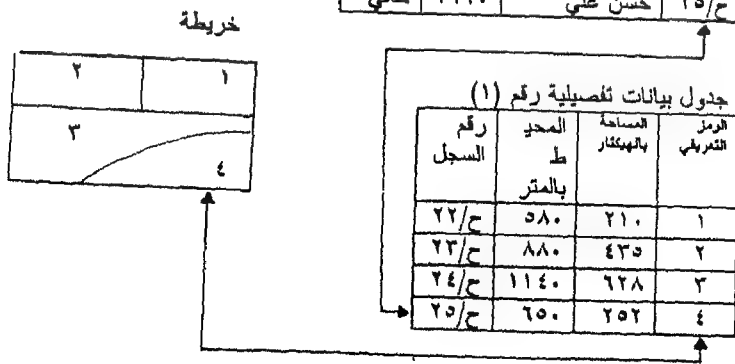 ح/٢٥ حسن علي
خريطة
٢ ١
٣
٤
جدول بيانات تفصيلية رقم (١)
الرمز التعريفي المساحة بالهيكتار المحيط بالمتر رقم السجل
١ ٢١٠ ٥٨٠ ح/٢٢
٢ ٤٣٥ ٨٨٠ ح/٢٣
٣ ٦٢٨ ١١٤٠ ح/٢٤
٤ ٢٥٢ ٦٥٠ ح/٢٥